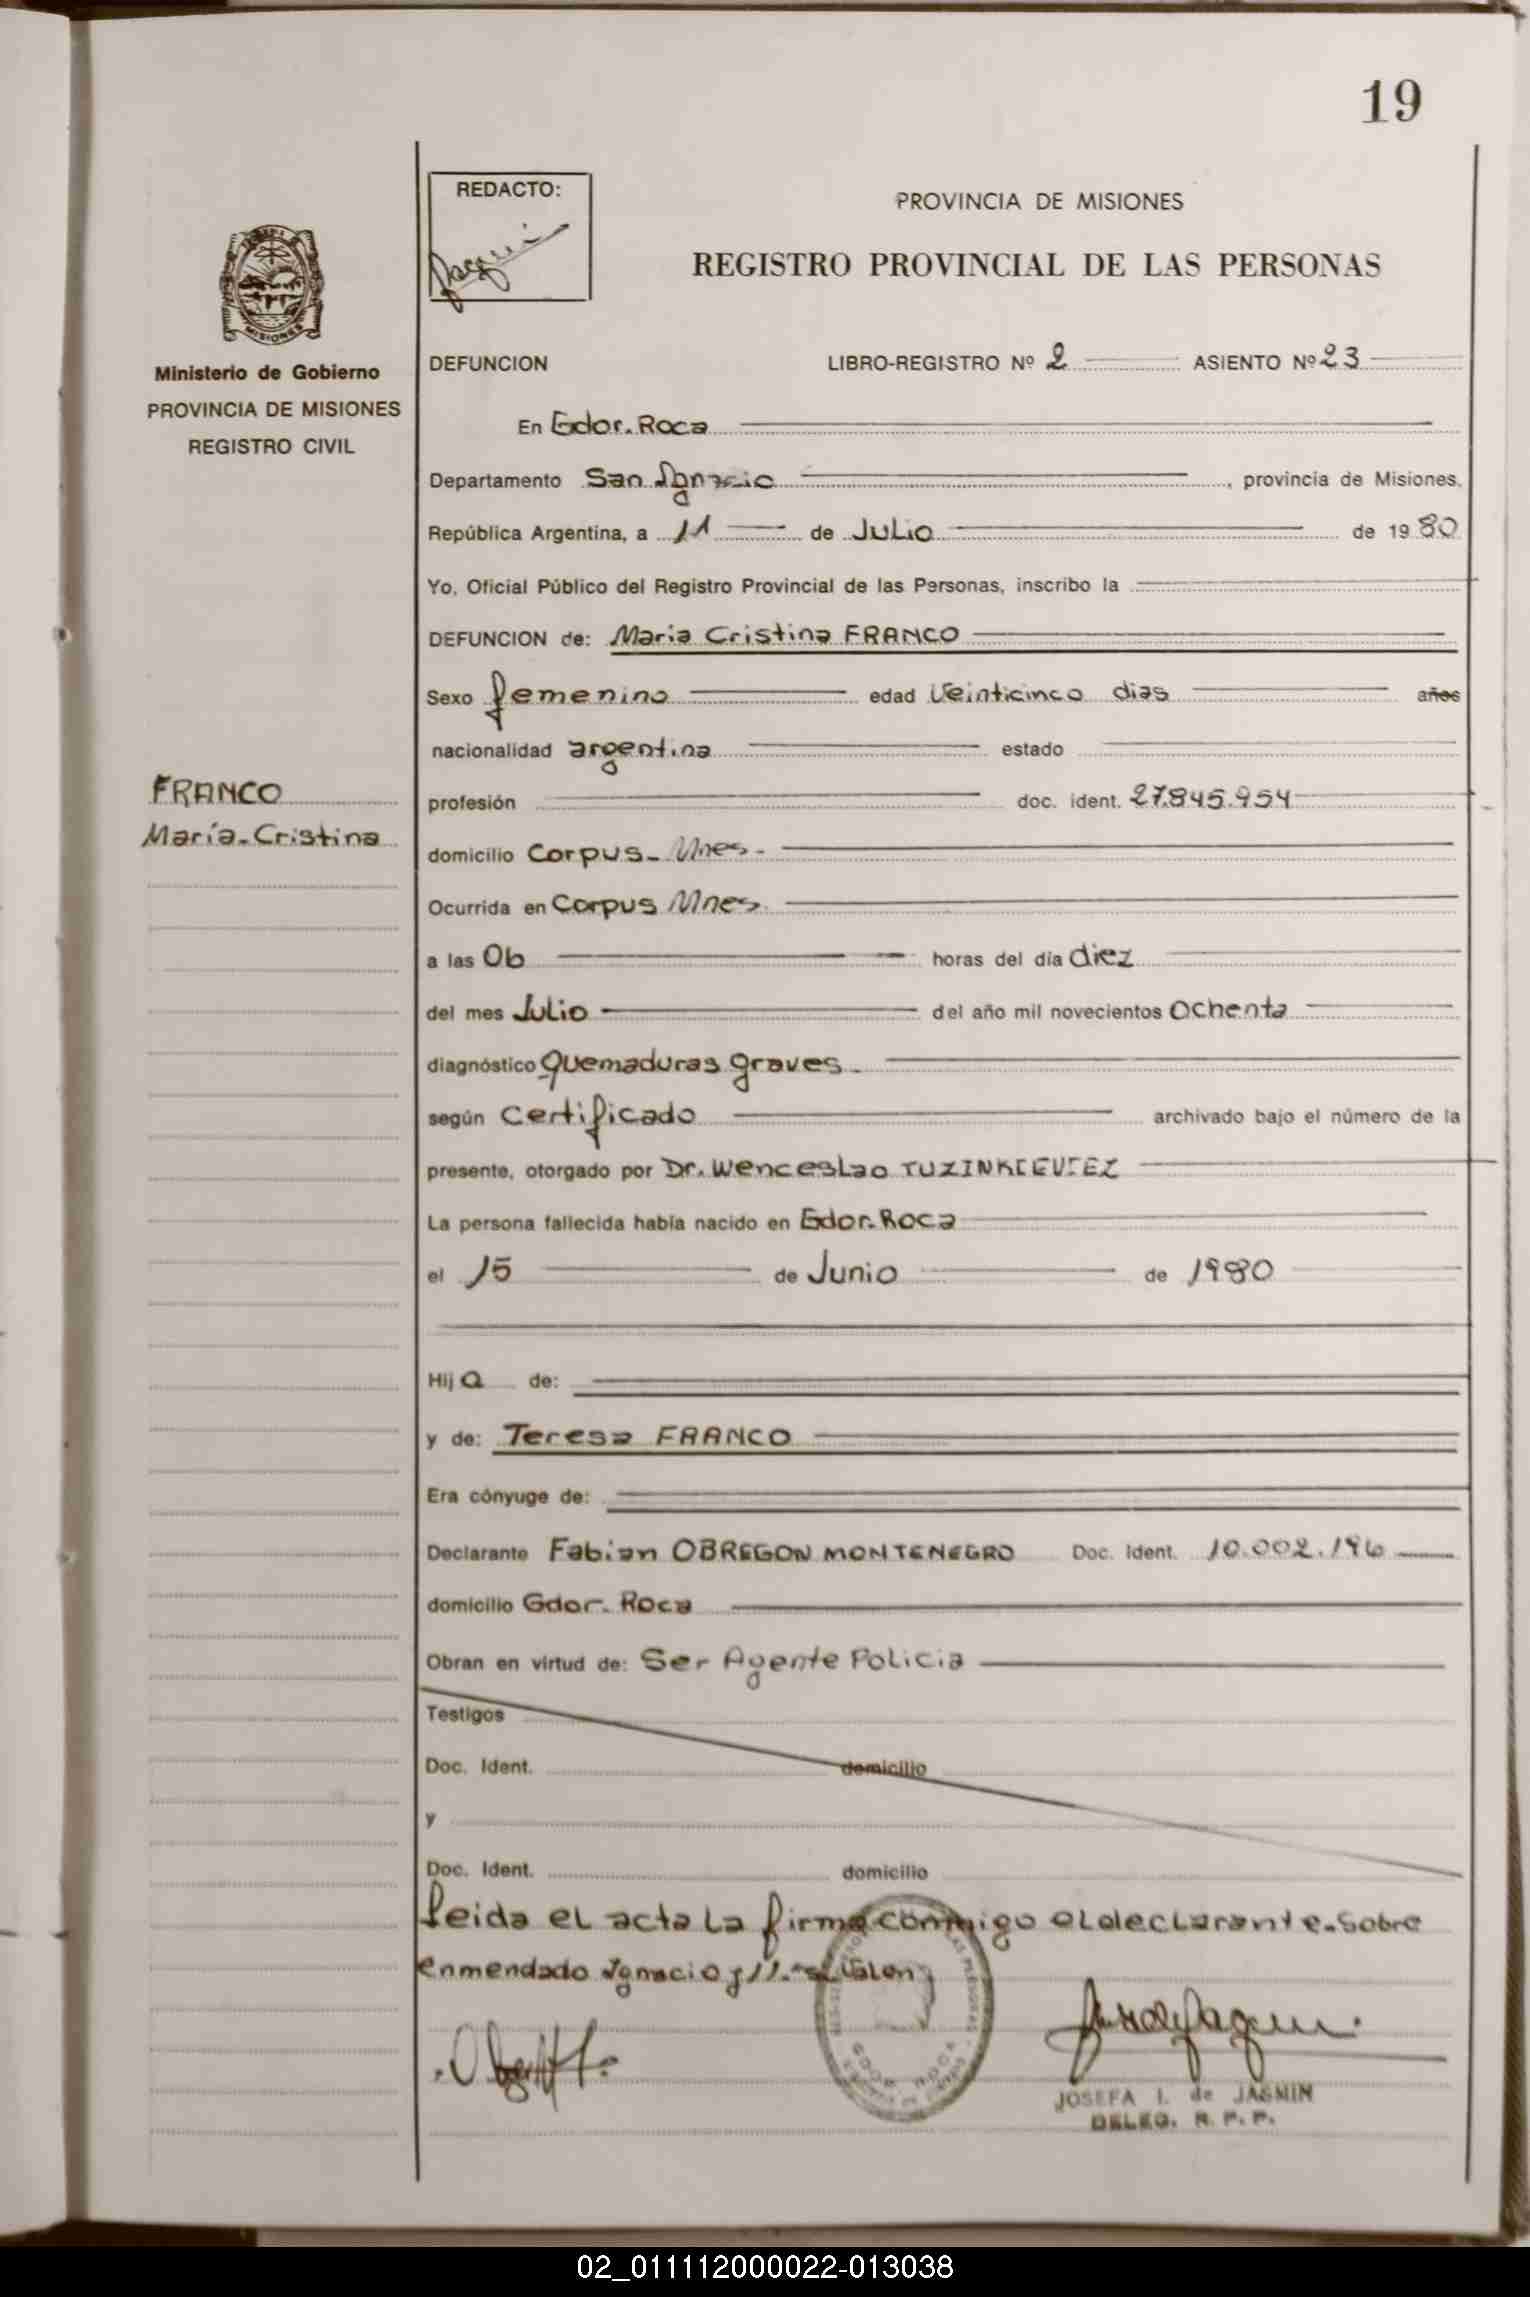 19
REDACTO:
PROVINCIA DE MISIONES
REGISTRO PROVINCIAL DE LAS PERSONAS
MISIONES
Ministerio de Gobierno
PROVINCIA DE MISIONES
REGISTRO CIVIL
DEFUNCION LIBRO-REGISTRO Nº 2 ASIENTO Nº 23
En Gdor. Roca
Departamento San Ignacio, provincia de Misiones.
República Argentina, a 11 de Julio de 1980
Yo, Oficial Público del Registro Provincial de las Personas, inscribo la
DEFUNCION de: Maria Cristina FRANCO
Sexo femenino edad Veinticinco dias años
nacionalidad argentina estado
FRANCO
María-Cristina
profesión doc. ident. 27.845.954
domicilio Corpus- Mnes-
Ocurrida en Corpus Mnes.
a las 06 horas del día diez
del mes Julio del año mil novecientos Ochenta
diagnóstico Quemaduras graves.
según Certificado archivado bajo el número de la
presente, otorgado por Dr. Wenceslao TUZINKIEVIEZ
La persona fallecida había nacido en Gdor. Roca
el 15 de Junio de 1980
Hija de:
y de: Teresa FRANCO
Era cónyuge de:
Declarante Fabian OBREGON MONTENEGRO Doc. Ident. 10.002.196
domicilio Gdor. Roca
Obran en virtud de: Ser Agente Policia
Testigos
Doc. Ident. domicilio
y
Doc. Ident. domicilio
Leida el acta la firma conmigo el declarante. Sobre
enmendado Ignacio y 11.
GDOR. ROCA
JOSEFA I. de JASMIN
DELEG. R. P. P.
02_011112000022-013038